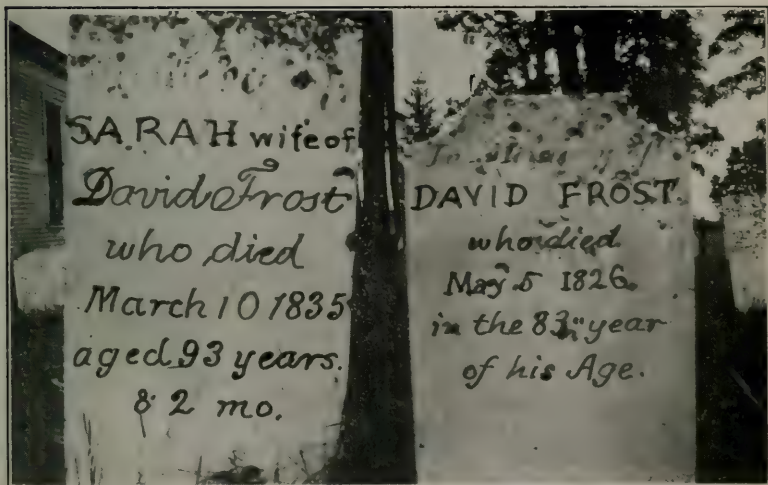 SARAH wife of
David Frost
who died
March 10 1835
aged 93 years.
& 2 mo.
In Memory of
DAVID FROST.
who died
May 5 1826.
in the 83rd year
of his Age.